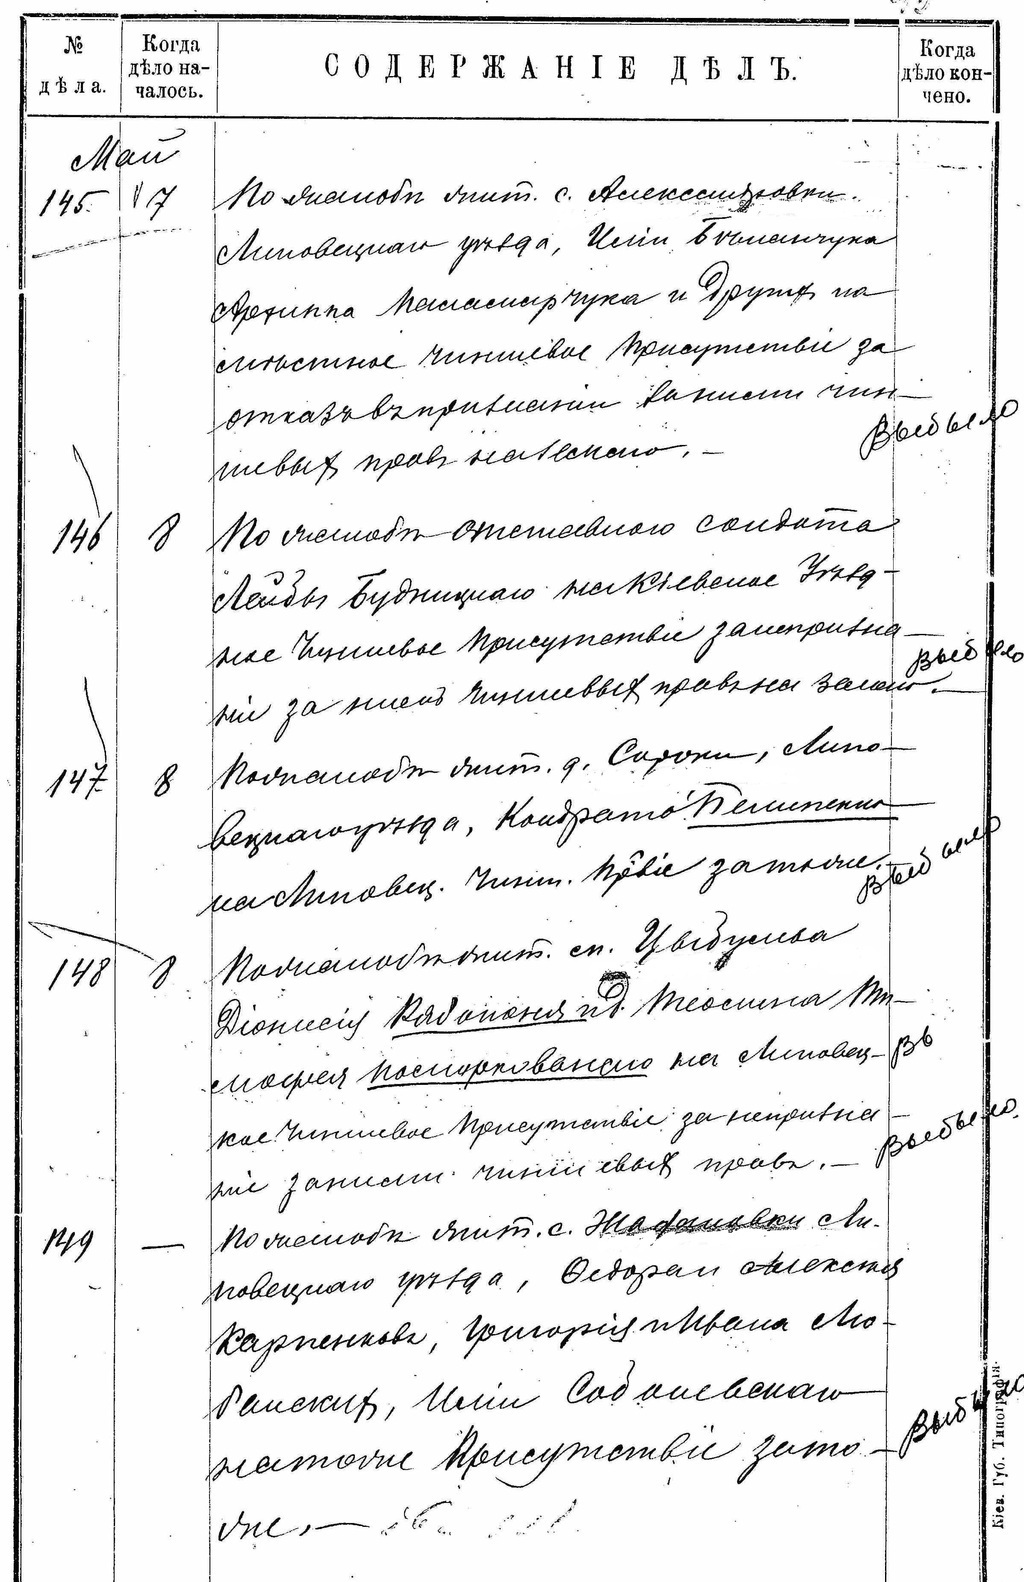 № дѣла.
Когда дѣло началось.
СОДЕРЖАНІЕ ДѢЛЪ.
Когда дѣло кончено.
Май
145. 7 По жалобѣ жит. с. Александровки
Липовецкаго уѣзда, Иліи
Архиппа и другихъ на
мѣстное чиншевое присутствіе за
отказъ въ признаніи за ними чин-
шевыхъ правъ
Выбыло
146 8 По жалобѣ отставного солдата
Лейбы Будницкаго на Кіевское Уѣзд-
ное Чиншевое Присутствіе за непризна-
ніе за нимъ чиншевыхъ правъ на землю.
Выбыло
147 8 По жалобѣ жит. д. Сороки, Липо-
вецкаго уѣзда, Кондрата Пелипенко
на Липовец. Чинш. Првіе за тоже.
Выбыло
148 8 По жалобѣ жит. с. Цыбулева
Діонисія и Ти-
мофея на Липовец-
кое Чиншевое Присутствіе за непризна-
ніе за ними чиншевыхъ правъ. —
Выбыло.
149 — По жалобѣ жит. с. Ли-
повецкаго уѣзда, Федора и Алексѣя
Карпенковъ, Григорія и Ивана Лю-
банскихъ, Иліи Соболевскаго
на тоже Присутствіе за то-
же. —
Выбыло
Кіев. Губ. Типографія.